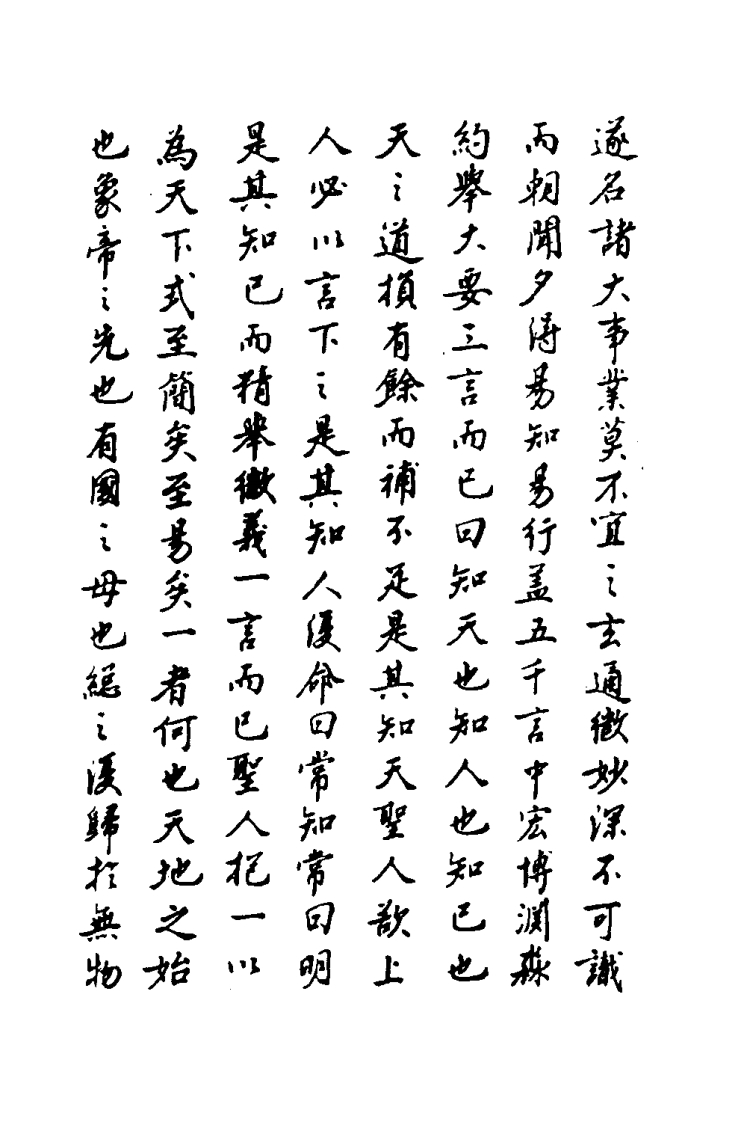 遂名諸大事業莫不宜之玄通微妙深不可識
而朝聞夕得易知易行蓋五千言中宏博淵淼
約舉大要三言而已曰知天也知人也知己也
天之道損有餘而補不足是其知天聖人欲上
人必以言下之是其知人復命曰常知常曰明
是其知己而精舉微義一言而已聖人抱一以
為天下式至簡矣至易矣一者何也天地之始
也象帝之先也有國之母也總之復歸於無物